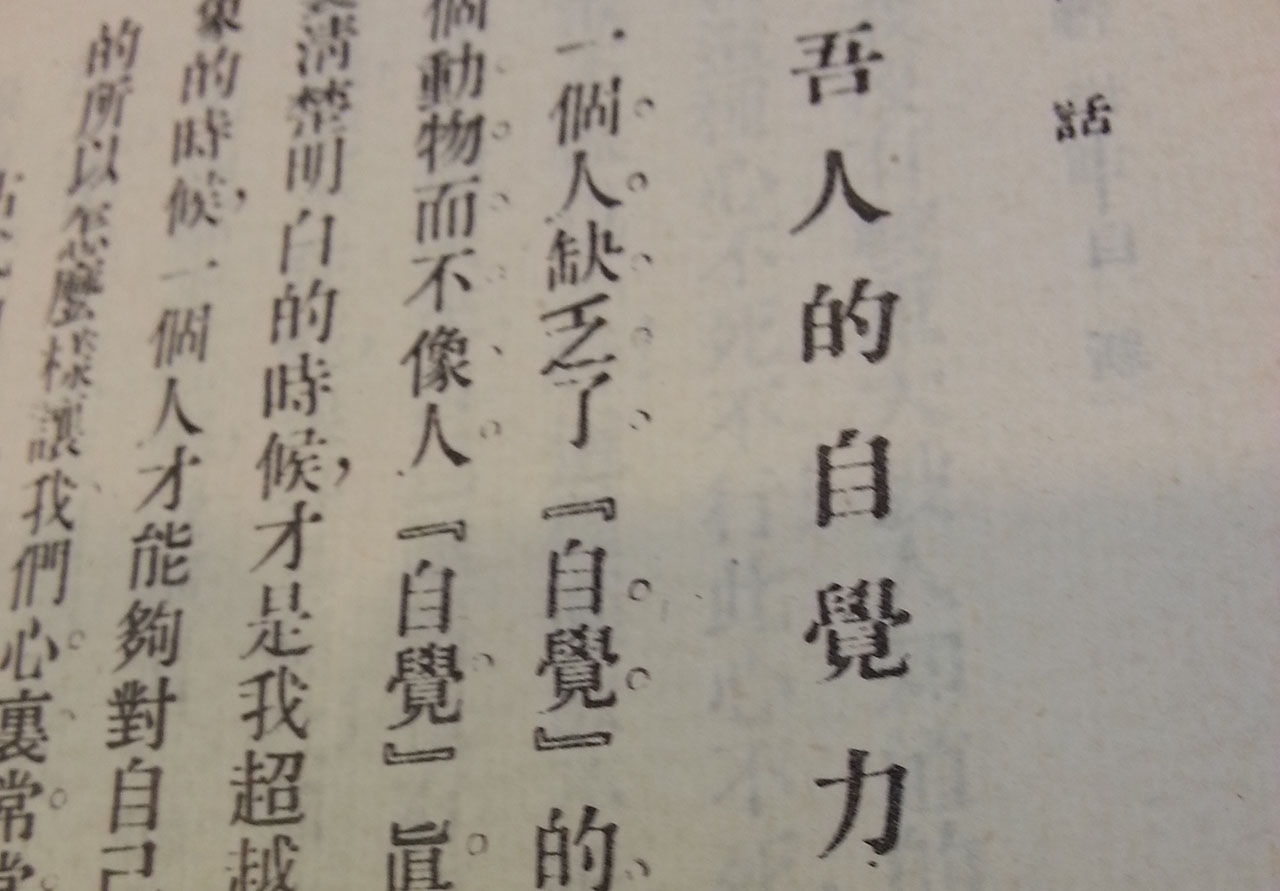 話
吾人的自覺力
一個人缺乏了『自覺』的
個動物而不像人『自覺』眞
清楚明白的時候,才是我超越
象的時候,一個人才能夠對自己
的所以怎麼樣讓我們心裏常常